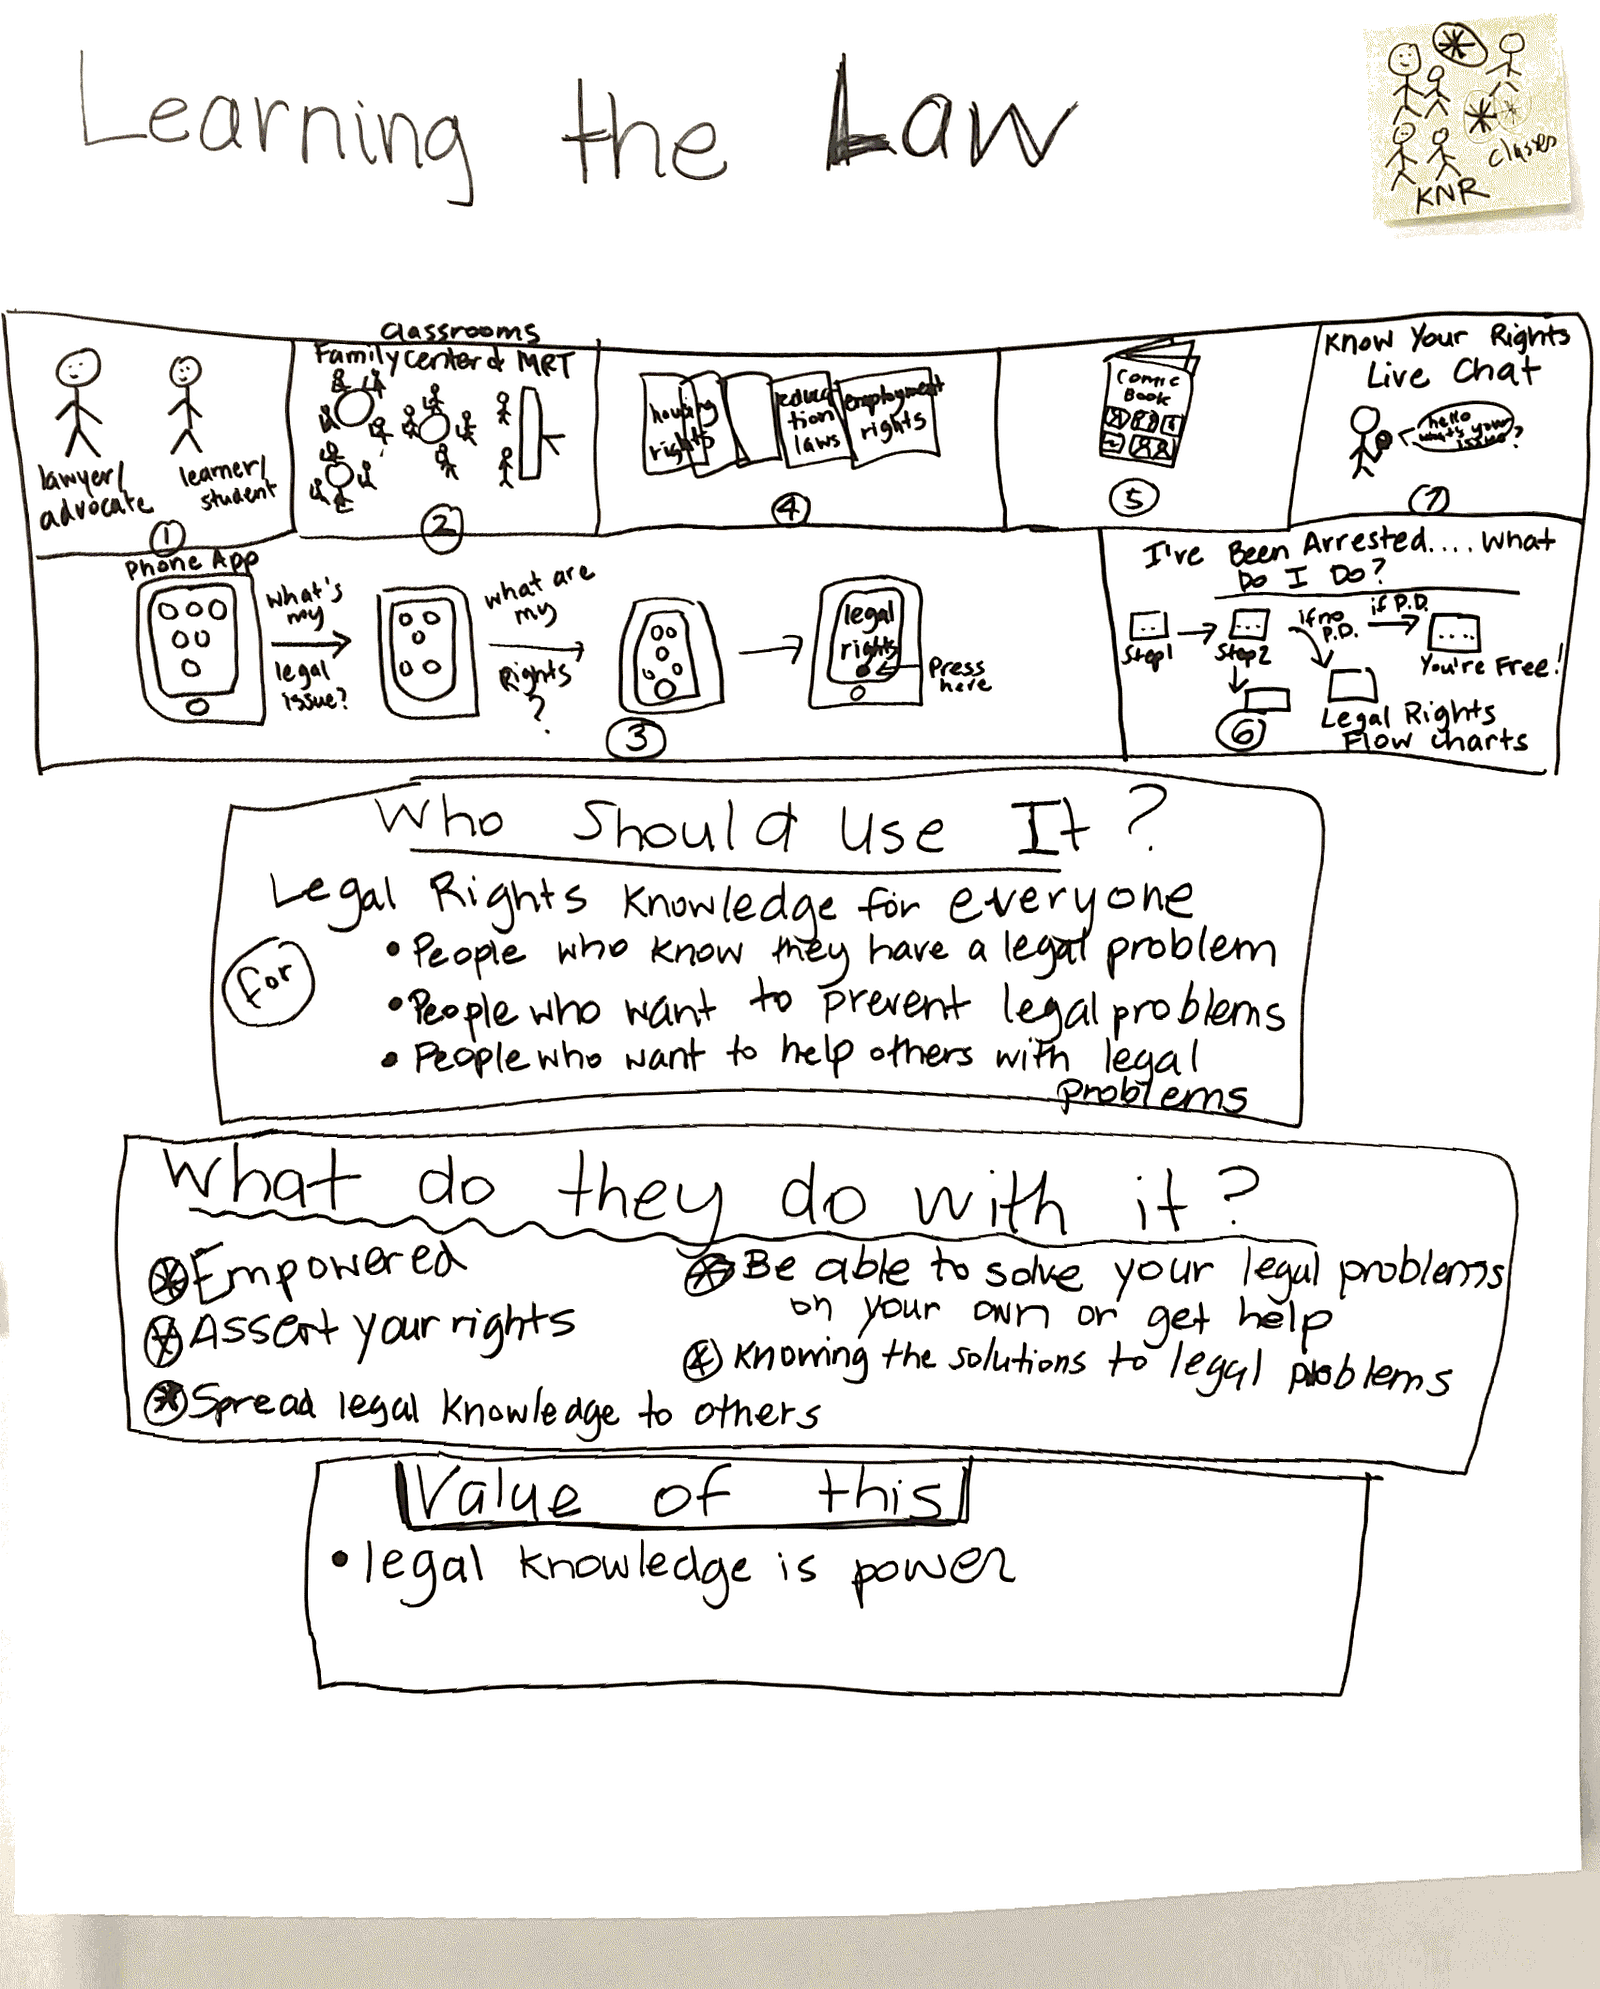 Learning the Law
classes
KNR
lawyer/
advocate
learner/
student
1
Classrooms
Family center & MRT
2
housing
rights
educa
tion
laws
employment
rights
4
Comic
Book
5
Know Your Rights
Live Chat
hello
what's your
issue?
7
Phone App
what's
my
legal
issue?
what are
my
Rights
?
legal
rights
Press
here
3
I've Been Arrested.... What
Do I Do?
Step1
Step2
if no
P.D.
if P.D.
You're Free!
Legal Rights
Flow Charts
6
Who Should Use It?
Legal Rights Knowledge for everyone
for
• People who know they have a legal problem
• People who want to prevent legal problems
• People who want to help others with legal
problems
What do they do with it?
Empowered
Assert your rights
Spread legal knowledge to others
Be able to solve your legal problems
on your own or get help
Knowing the solutions to legal problems
Value of this
• legal knowledge is power